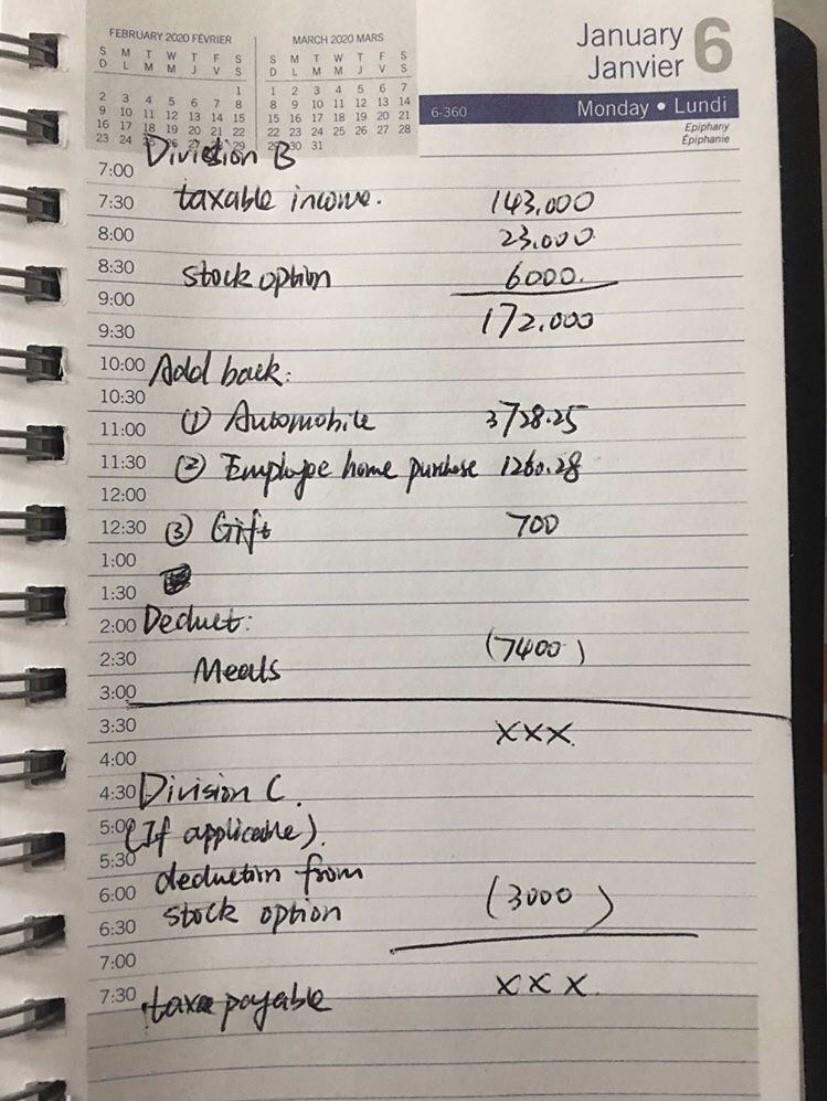 FEBRUARY 2020 FÉVRIER
S M T W T F S
D L M M J V S
1
2 3 4 5 6 7 8
9 10 11 12 13 14 15
16 17 18 19 20 21 22
23 24 29
MARCH 2020 MARS
S M T W T F S
D L M M J V S
1 2 3 4 5 6 7
8 9 10 11 12 13 14
15 16 17 18 19 20 21
22 23 24 25 26 27 28
29 30 31
January 6
Janvier
6-360 Monday • Lundi
Epiphany
Épiphanie
Division B
7:00
7:30 taxable income. 143,000
8:00 23,000
8:30 stock option 6000.
9:00
9:30 172,000
10:00 Add back:
10:30
11:00 (1) Automobile 3728.25
11:30 (2) Employee home purchase 1260.28
12:00
12:30 (3) Gift 700
1:00
1:30
2:00 Deduct:
2:30 Meals (7400)
3:00
3:30 xxx.
4:00
4:30 Division C.
5:00 (If applicable).
5:30 deduction from
6:00 stock option (3000)
6:30
7:00
7:30 tax payable xxx.